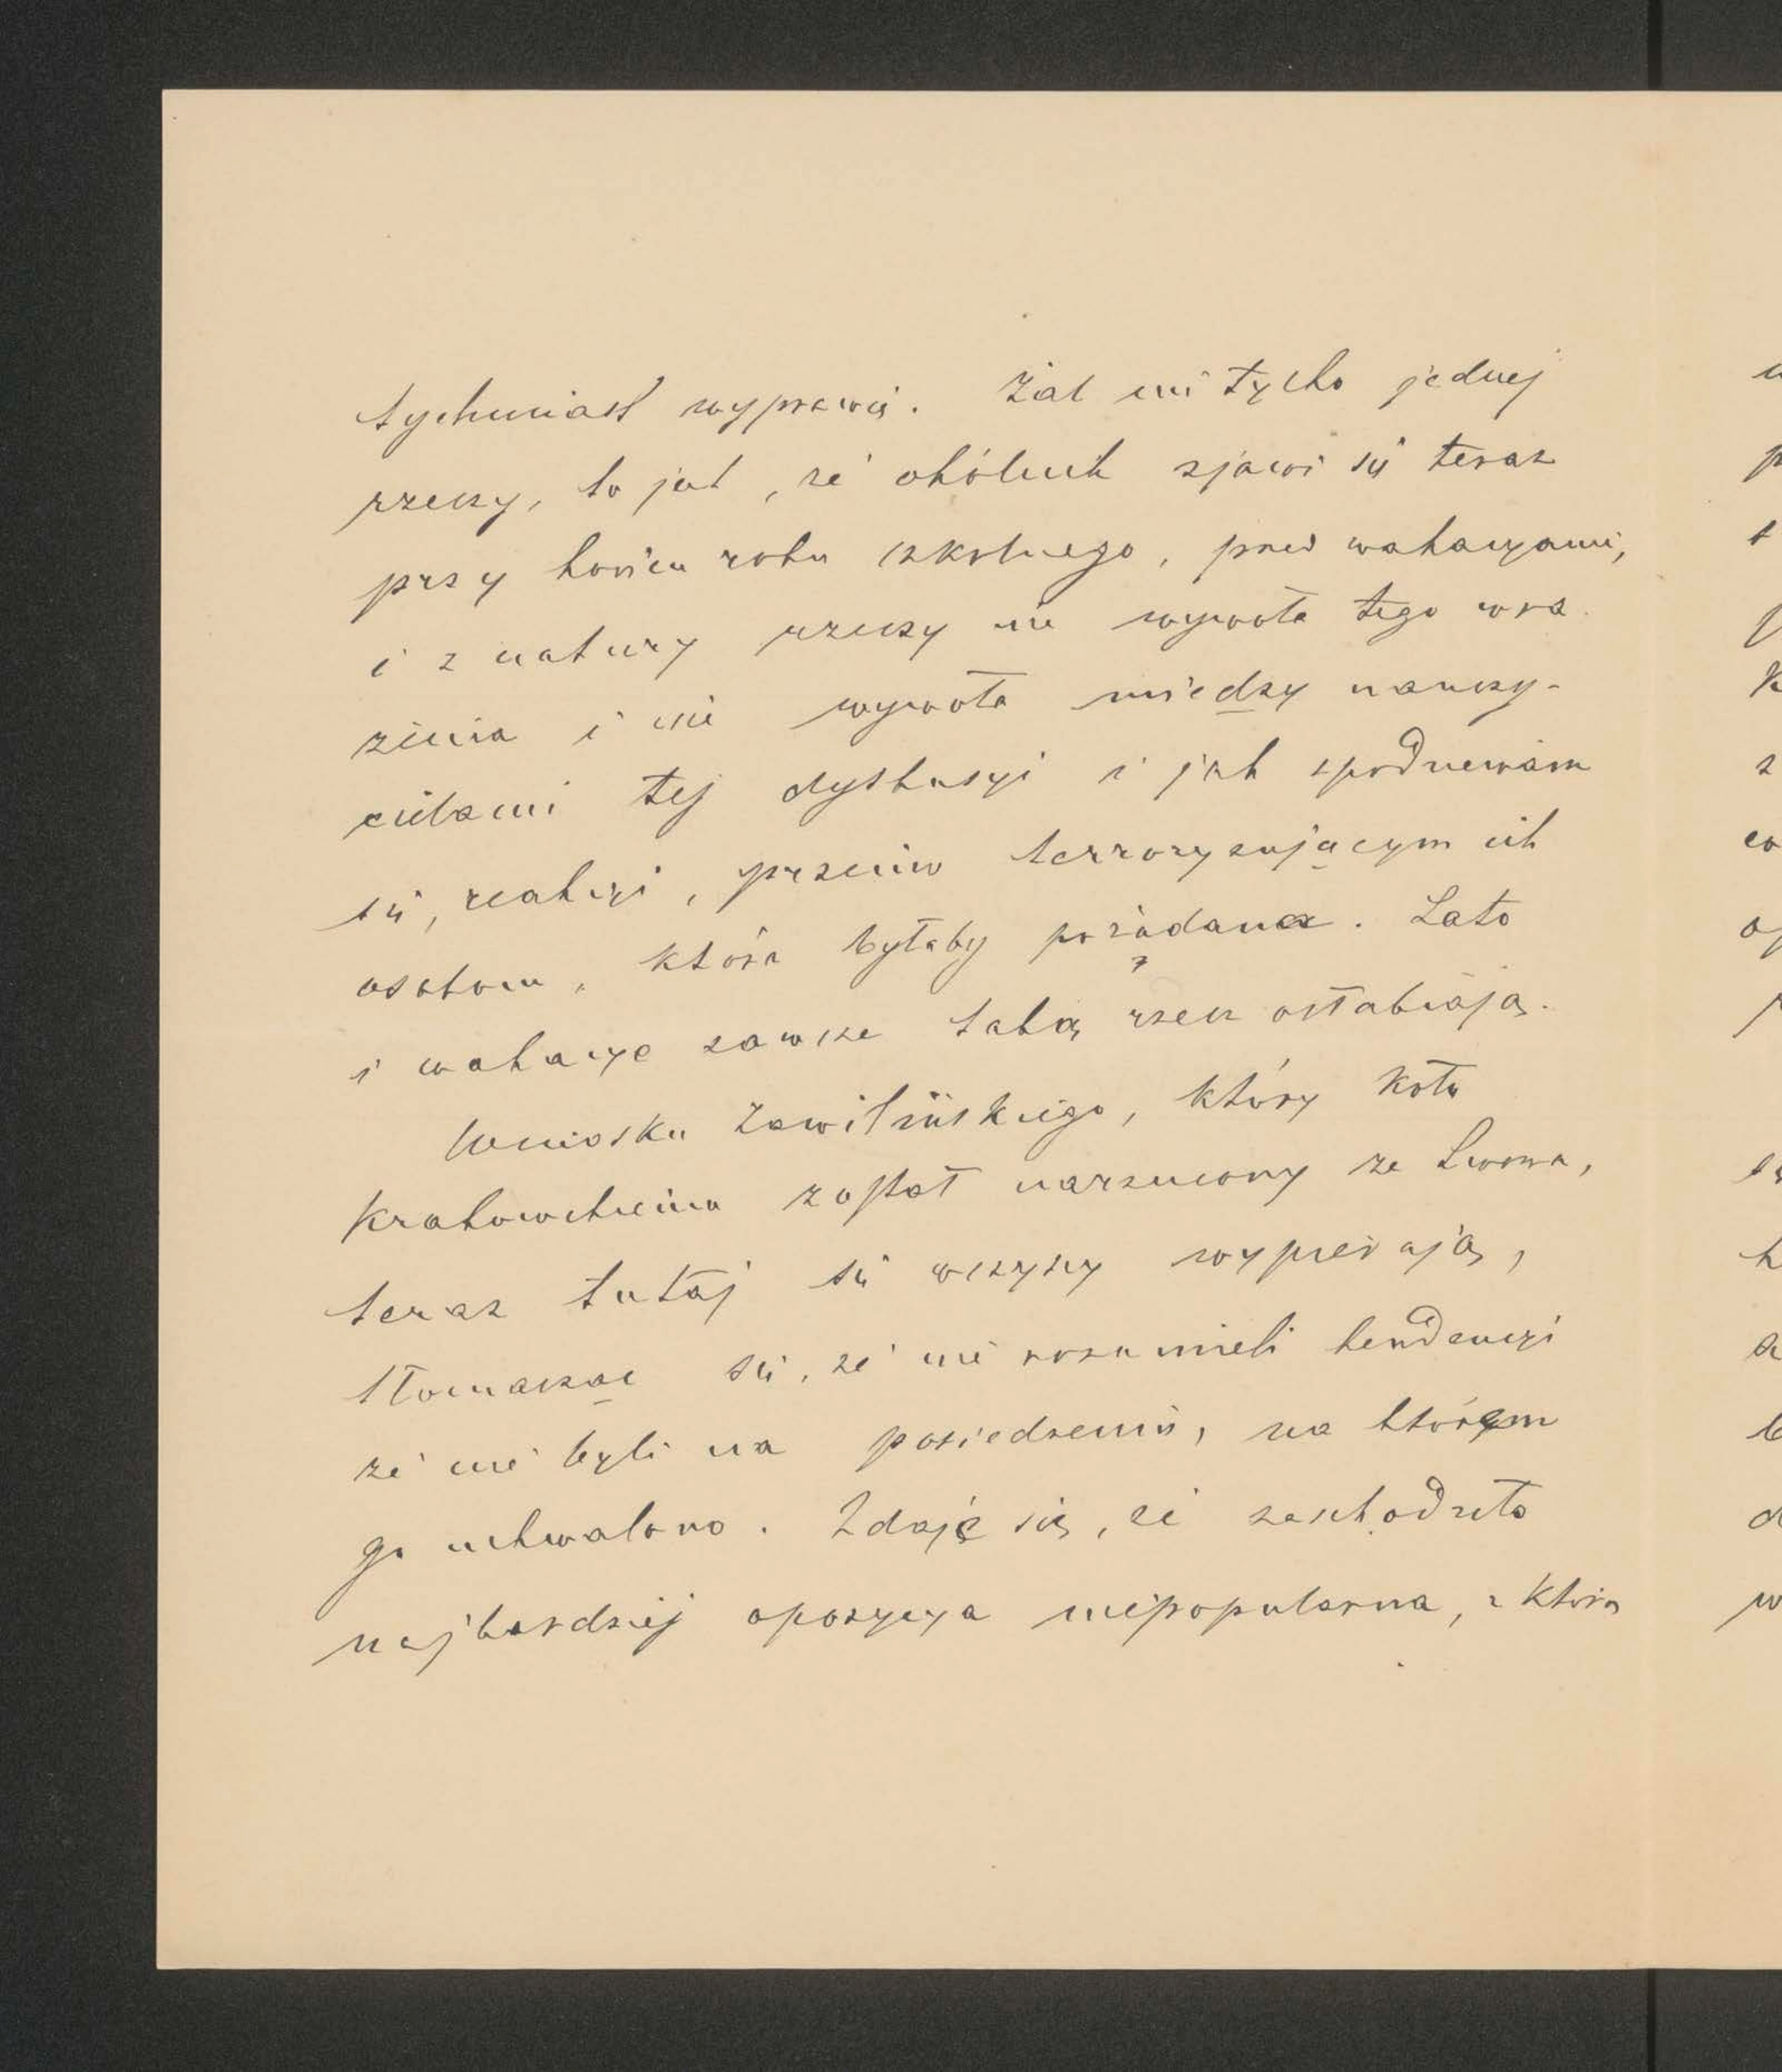 tychmiast wyprawić. Żal mi tylko jednej
rzeczy, to jest, że okólnik zjawi się teraz
przy końcu roku szkolnego, przed wakacyami,
i z natury rzeczy nie wywoła tego wra
żenia i nie wywoła między nauczy-
cielami tej dyskusyi i jak spodziewam
się, reakcyi, przeciw terroryzującym ich
osobom, która byłaby pożądana. Lato
i wakacye zawsze taką rzecz osłabiają.
Wniosku Zawilińskiego, który Kołu
Krakowskiemu został narzucony ze Lwowa,
teraz tutaj się wszyscy wypierają,
tłomacząc się, że nie rozumieli tendencyi
że nie byli na posiedzeniu, na którem
go uchwalono. Zdaje się, że zaszkodziło
najbardziej opozycya niepopularna, z którą